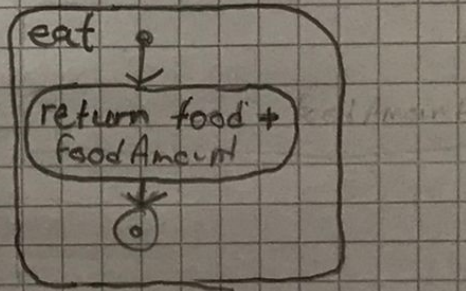 eat
return food +
foodAmount